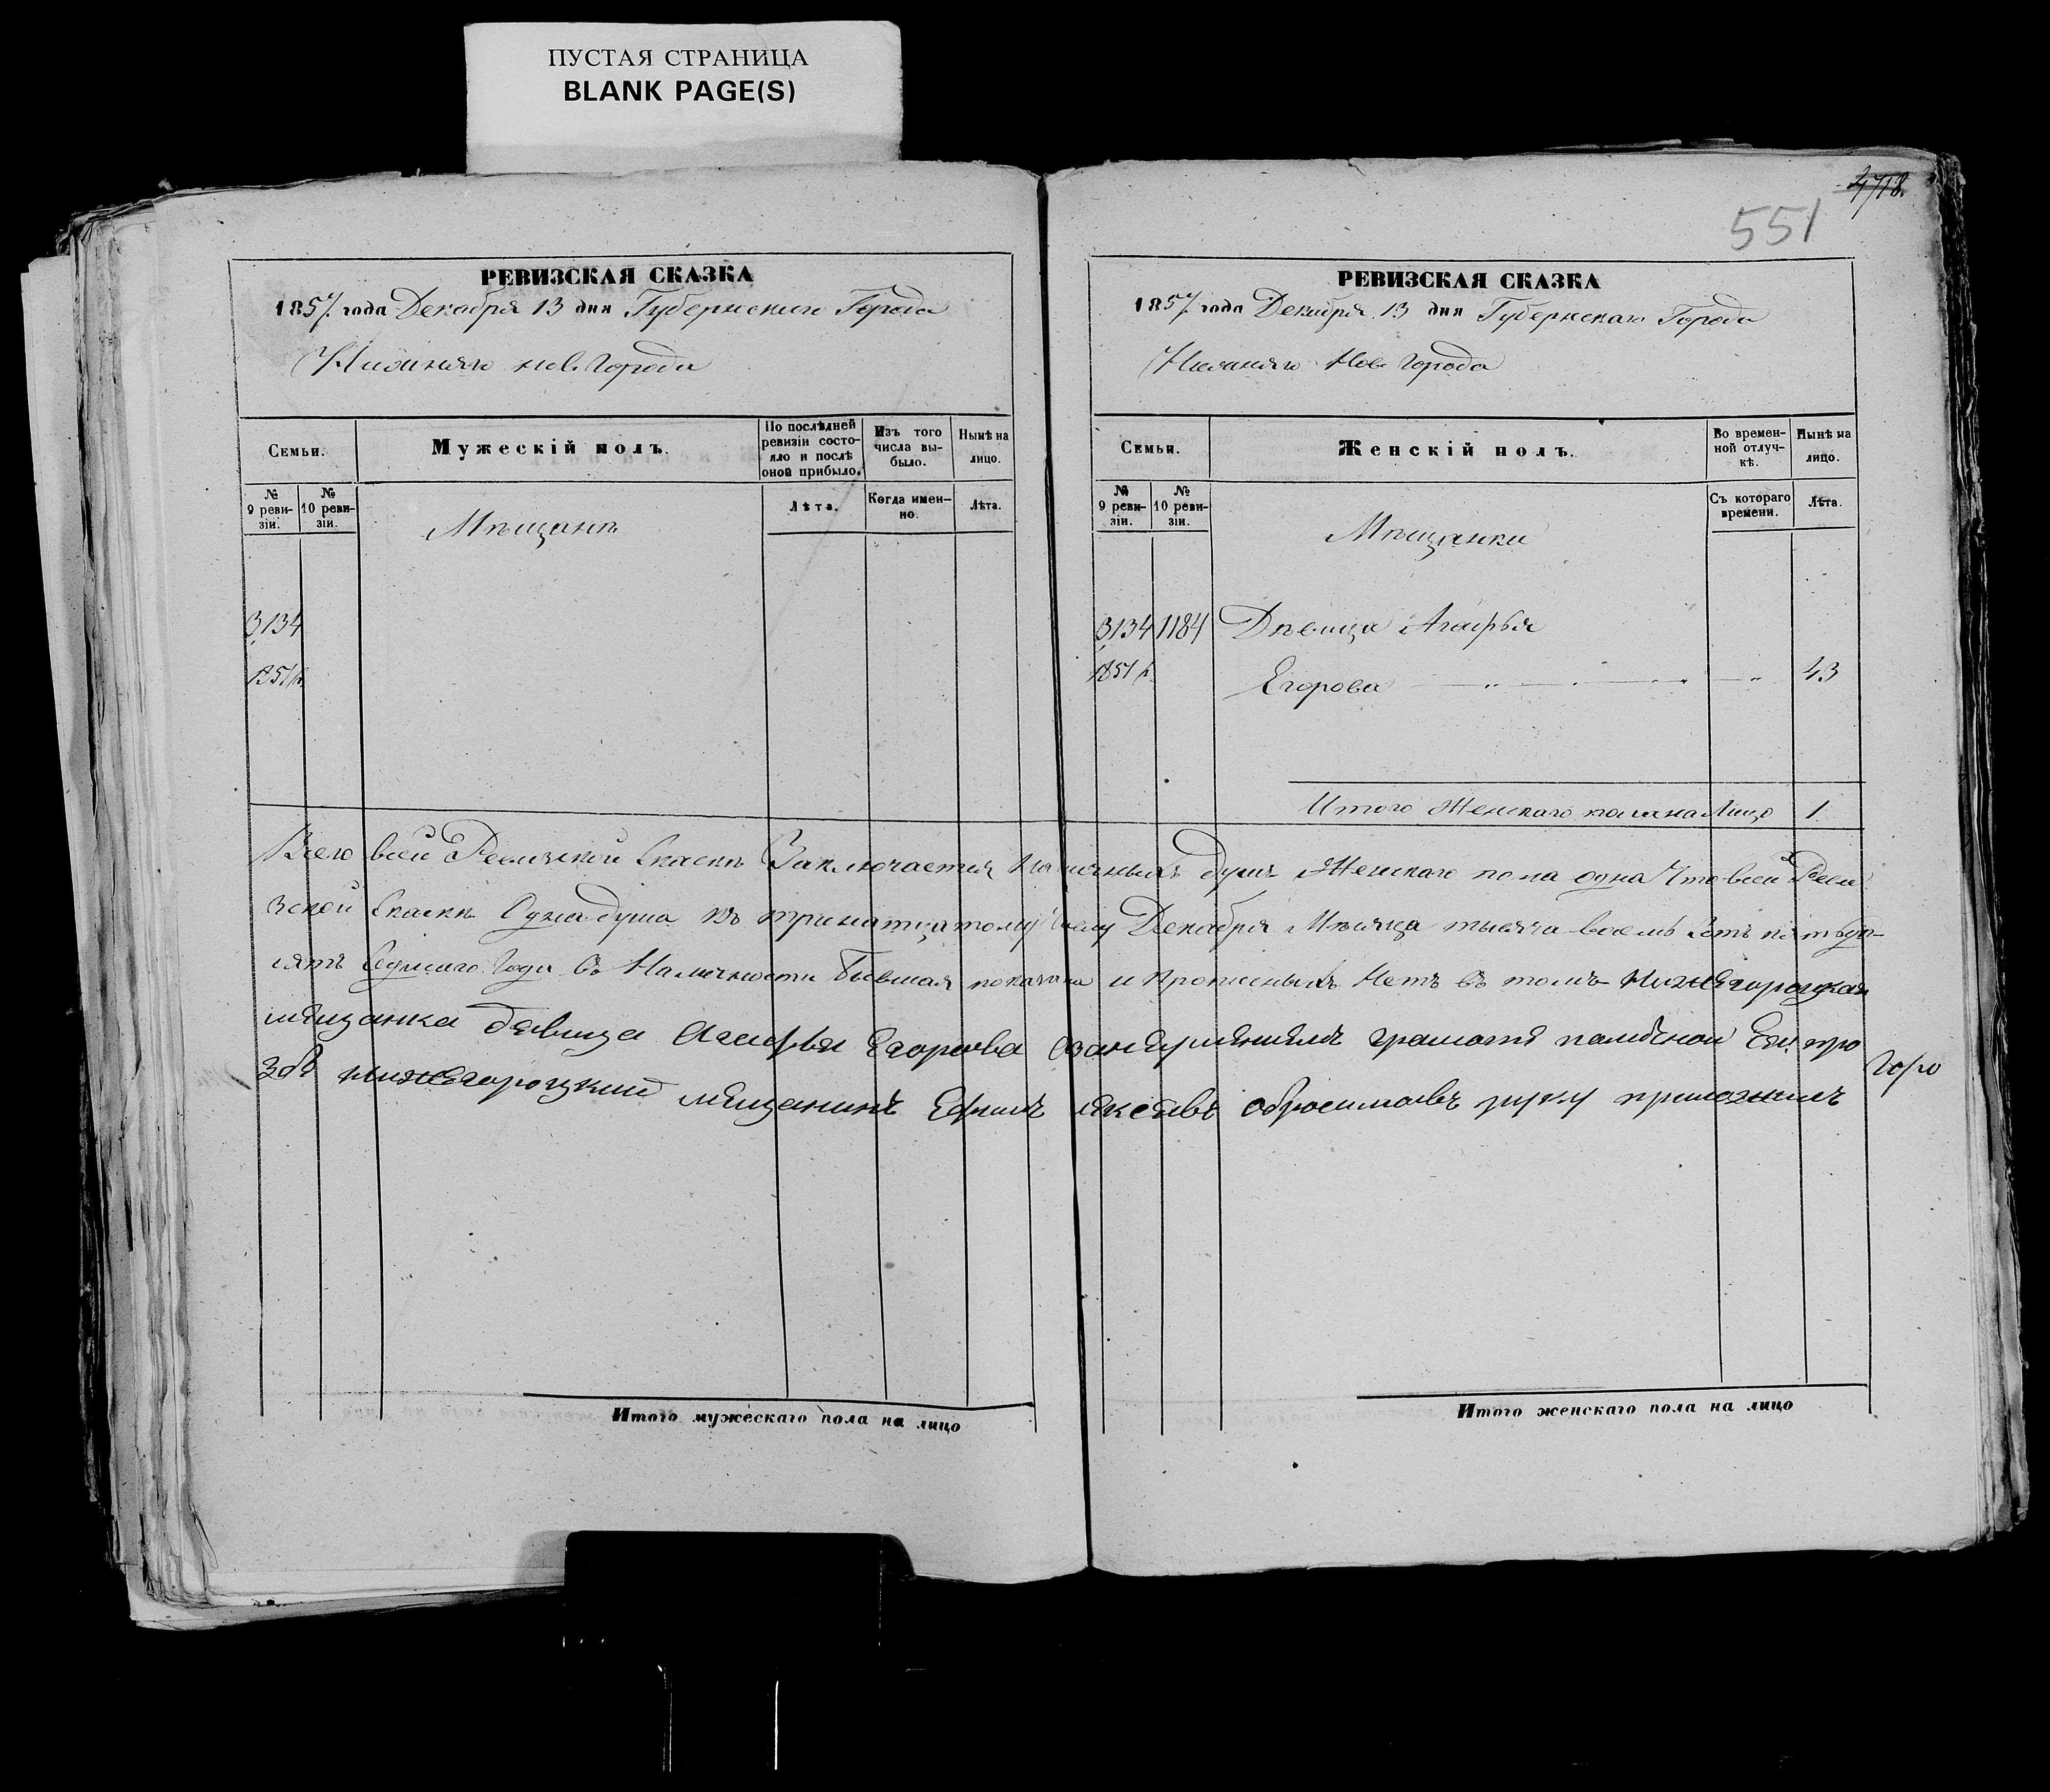 ПУСТАЯ СТРАНИЦА
BLANK PAGE(S)
4718.
551
РЕВИЗСКАЯ СКАЗКА
1857. года Декабря 13 дня Губернскаго Города
Нижняго нов. Города
Семьи.
Мужескій полъ.
По послѣдней ревизіи состояло и послѣ оной прибыло.
Изъ того числа выбыло.
Нынѣ на лицо.
№ 9 ревизіи.
№ 10 ревизіи.
Мѣщанъ
Лѣта.
Когда именно.
Лѣта.
3134
1851 г.
РЕВИЗСКАЯ СКАЗКА
1857. года Декабря 13 дня Губернскаго Города
Нижняго Нов. Города
Семьи.
Женскій полъ.
Во временной отлучкѣ.
Нынѣ на лицо.
№ 9 ревизіи.
№ 10 ревизіи.
Мѣщанки
Съ котораго времени.
Лѣта.
3134 1184 Дѣвица Агафья
1851 г. Егорова 43
Итого Женскаго пола на Лицо 1.
Всего всей Ревизской Сказкѣ Заключается Наличныхъ душъ Женскаго пола одна Что всей Реви
зской Сказкѣ Одна душа къ тринатцатому числу Декабря Мѣсяца тысяча восемь Сотъ пятьде-
сятъ Седмаго Года въ Наличности бывшая показана и Прописныхъ Нетъ въ томъ нижегороцкая
мещанка девица Агафья Егорова грамоте Ей! про
збе нижегороцкий мещанинъ Ефимъ обросимовъ руку приложилъ
Итого мужескаго пола на лицо
Итого женскаго пола на лицо